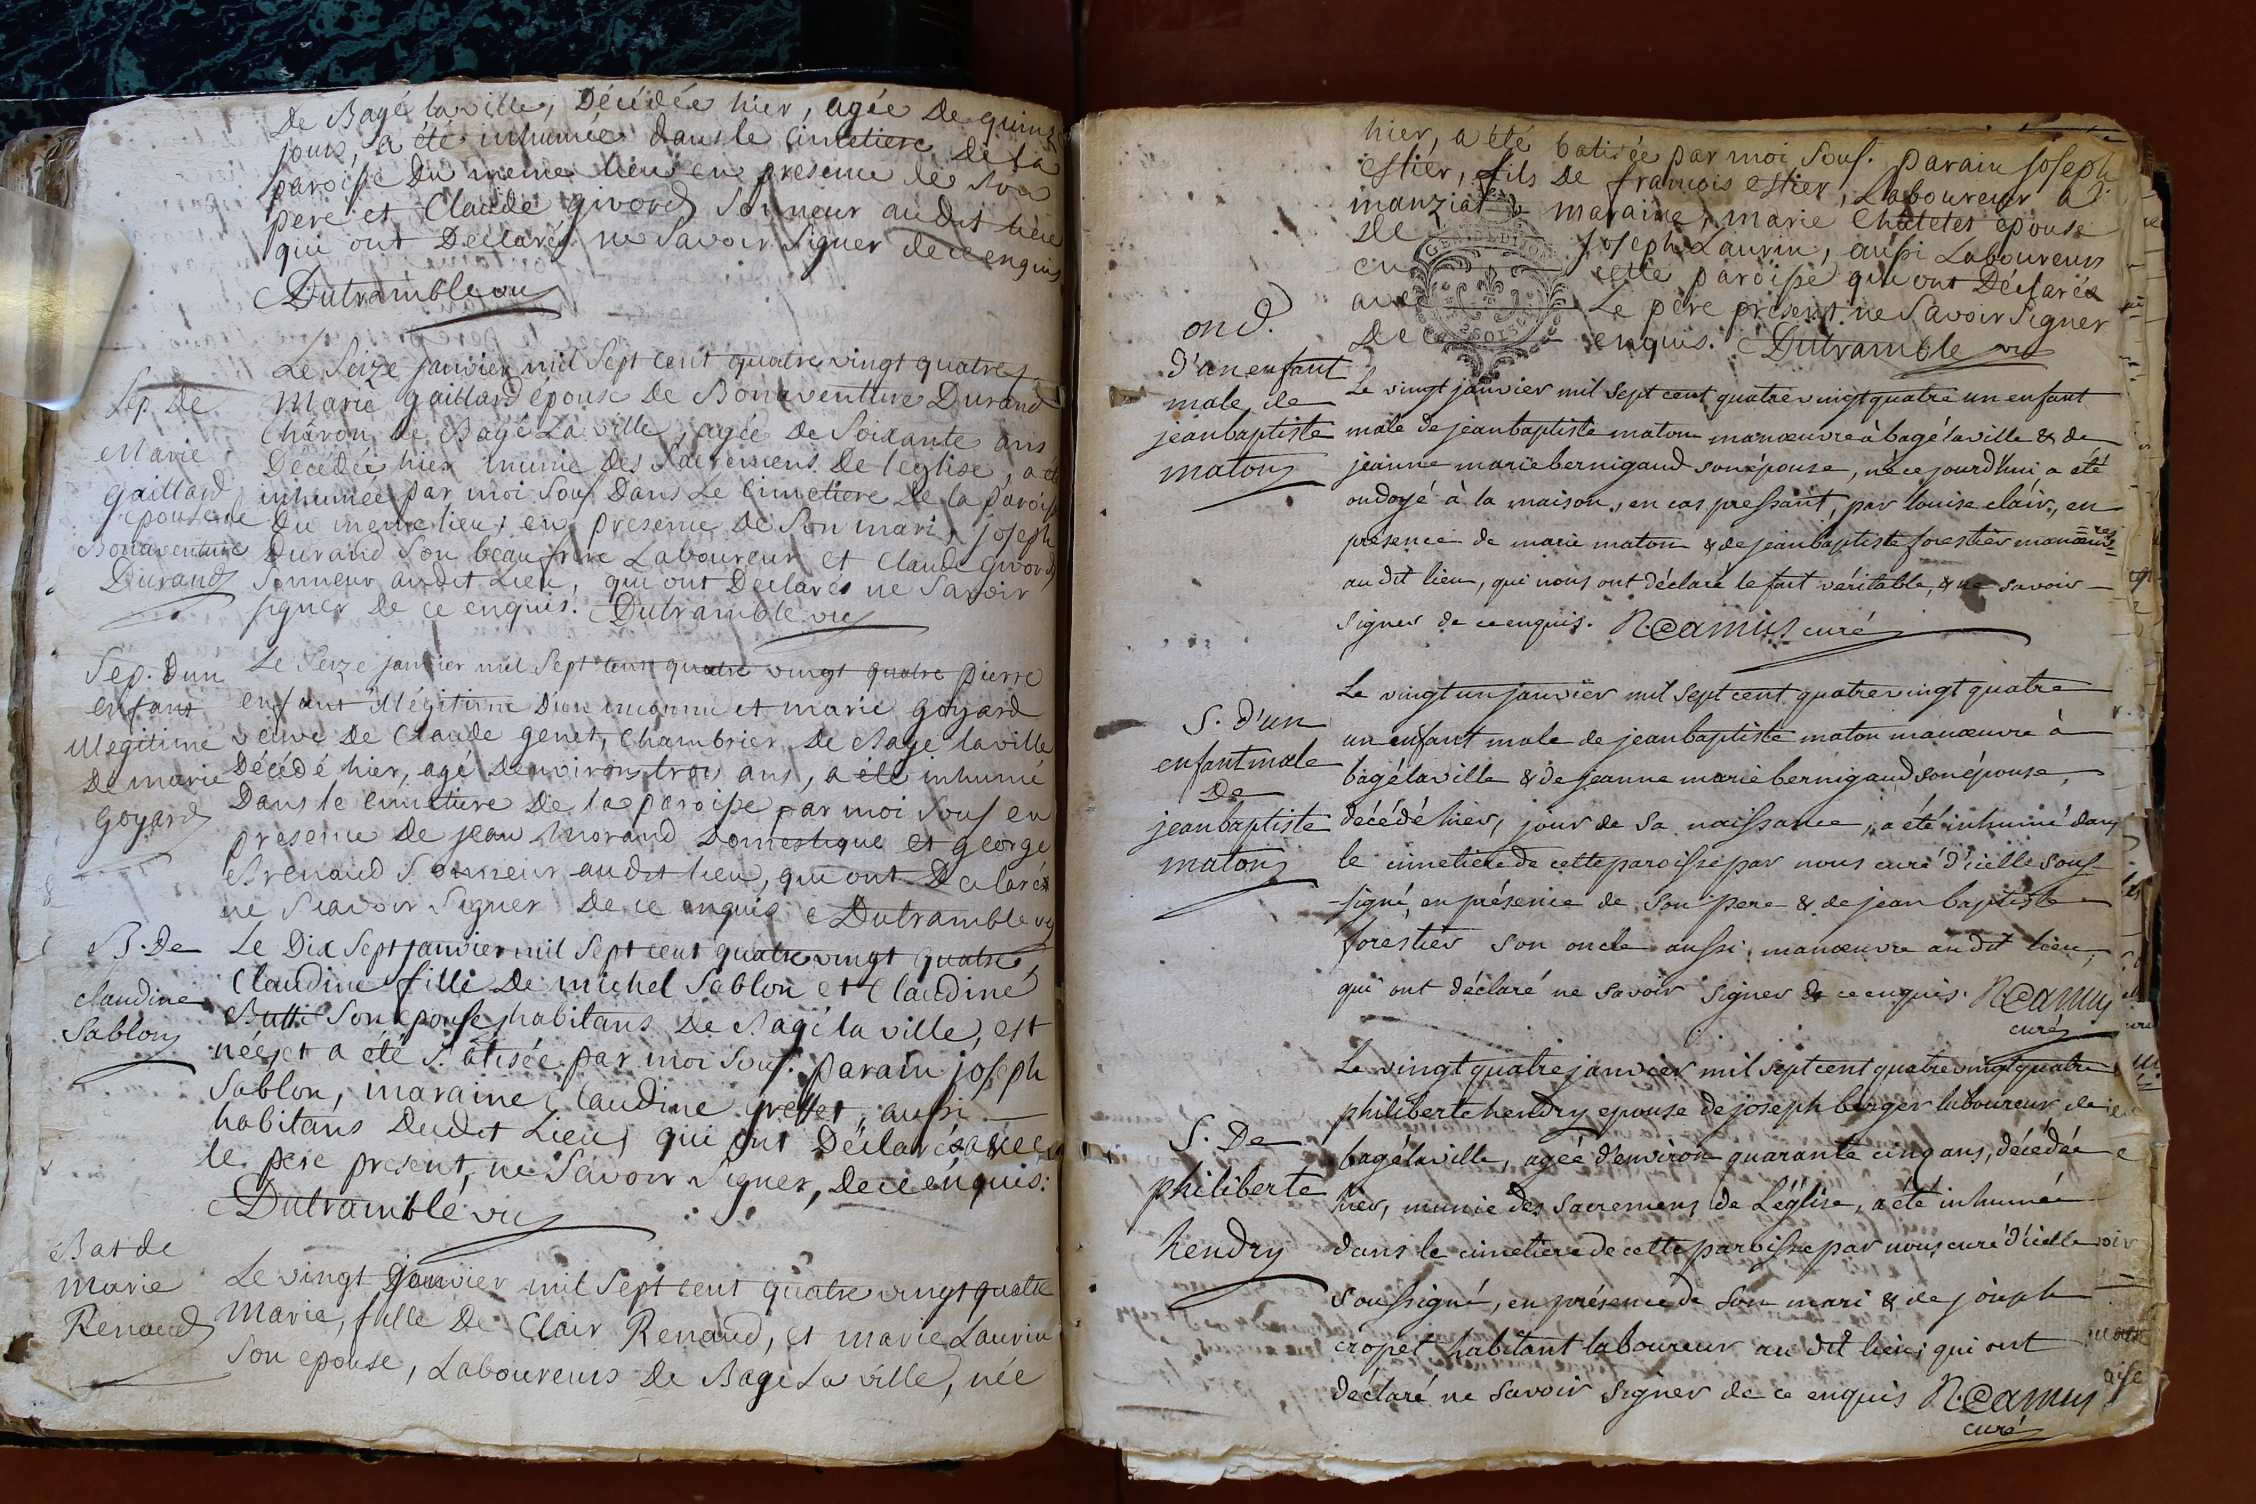 De Bagé laville, Décédée hier, agée De quinze
jours, a été inhumée dans le Cimetiere De la
paroisse Du meme lieu en presence de son
pere et Claude givord Sonneur audit lieu
qui ont Declarés ne Savoir Signer de ce enquis
Dutramble vic
Sep. De
Marie
Gaillard
epouse de
Bonaventure
Durand
Le Seize janvier mil Sept cent quatre vingt quatre
Marie gaillard épouse De Bonaventure Durand
Charon De Bagé La ville, agée De Soixante ans
Décédée hier munie Des Sacremens De l'eglise, a été
inhumée par moi Sous. Dans Le Cimetiere De la paroisse
Du meme lieu, en presence De Son mari, joseph
Durand Son beaufrere Laboureur et Claude Givord
Sonneur audit Lieu, qui ont Declarés ne Savoir
signer De ce enquis. Dutramble vic
Sep. Dun
enfant
illegitime
De marie
Goyard
Le Seize janvier mil Sept cent quatre vingt quatre pierre
enfant illégitime D'un inconnu et marie goyard
veuve De Claude genet, Chambrier De Bage laville
Décédé hier, agé Denvirons trois ans, a été inhumé
Dans le Cimetiere De la paroisse par moi Sous en
presence De jean Morand Domestique et george
Brenaud Sonneur audit lieu, qui ont Déclarés
ne Sçavoir Signer De ce enquis Dutramble vic
B. De
claudine
Sablon
Le Dix Sept janvier mil Sept cent quatre vingt quatre
Claudine fille De michel Sablon et Claudine
Butti Son epouse, habitans De Bagé la ville, est
née, et a été Batisée par moi Sous. parain joseph
Sablon, maraine Claudine greffet, aussi
habitans Dudit Lieu, qui ont Déclarés avec
le pere present, ne Savoir Signer, De ce enquis.
Dutramble vic
Bat de
Marie
Renaud
Le vingt janvier mil Sept cent quatre vingt quatre
Marie, fille De Clair Renaud, et marie Laurin
Son epouse, Laboureurs De Bagé La ville, née
hier, a été batisée par moi Sous. parain joseph
estier, fils De francois estier, Laboureur a
manziat maraine, marie Chatelet epouse
De joseph Laurin, aussi Laboureurs
en cette paroisse qui ont Déclarés
avec Le pere present ne Savoir Signer
De ce enquis. Dutramble vic
ond.
d'un enfant
male de
jean baptiste
maton
Le vingt janvier mil sept cent quatre vingt quatre un enfant
male de jean baptiste maton manœuvre à bagé laville & de
jeanne marie bernigaud son épouse, né ce jourd'hui a été
ondoyé à la maison, en cas pressant, par louise clair, en
présence de marie maton & de jean baptiste forestier manœuvres
au dit lieu, qui nous ont déclaré le fait véritable, & ne savoir
signer de ce enquis. Camus curé
S. d'un
enfant male
De
jean baptiste
maton
Le vingt un janvier mil sept cent quatre vingt quatre
un enfant male de jean baptiste maton manœuvre à
bagé laville & de jeanne marie bernigaud son épouse,
décédé hier, jour de sa naissance, a été inhumé dans
le cimetiere de cette paroisse par nous curé d'icelle sous-
-signé, en présence de son pere & de jean baptiste
forestier son oncle aussi manœuvre au dit lieu,
qui ont déclaré ne savoir signer de ce enquis. Camus
curé
S. De
philiberte
hendry
Le vingt quatre janvier mil sept cent quatre vingt quatre
philiberte hendry epouse de joseph berger laboureur de
bagé laville, agée d'environ quarante cinq ans, décédée
hier, munie des sacremens de L'église, a été inhumée
dans le cimetiere de cette paroisse par nous curé d'icelle
soussigné, en présence de son mari & de joseph
cropet habitant laboureur au dit lieu, qui ont
déclaré ne savoir signer de ce enquis Camus
curé